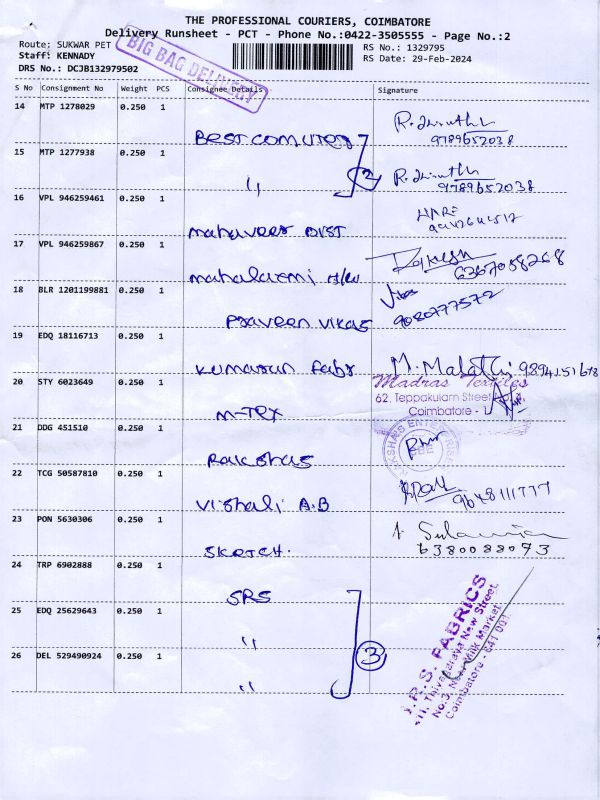 THE PROFESSIONAL COURIERS, COIMBATORE
Delivery Runsheet - PCT - Phone No.:0422-3505555 - Page No.:2
Route: SUKWAR PET
RS No.: 1329795
Staff: KENNADY
RS Date: 29-Feb-2024
DRS No.: DCJB132979502
BIG BAG DELIVERY
S No Consignment No Weight PCS Consignee Details Signature
14 MTP 1278029 0.250 1
Best computer
9789652038
15 MTP 1277938 0.250 1
〃 2
9789652038
16 VPL 946259461 0.250 1
HARE
mahaveer DIST
17 VPL 946259867 0.250 1
mahalaxmi
6367058268
18 BLR 1201199881 0.250 1
Praveen vikas
9080777572
19 EDQ 18116713 0.250 1
kumaran Fabs
M. Malathi 9894151678
20 STY 6023649 0.250 1
M-Tex
Madras Textiles
62, Teppakulam Street
Coimbatore - 1
21 DDG 451510 0.250 1
Rakshas
22 TCG 50587810 0.250 1
Vishali A.B
23 PON 5630306 0.250 1
Sketch.
6380088073
24 TRP 6902888 0.250 1
SRS
25 EDQ 25629643 0.250 1
〃 3
26 DEL 529490924 0.250 1
〃
S.R.S. FABRICS
Thiyagaraya New Street,
No.3, New Milk Market,
Coimbatore - 641 001.